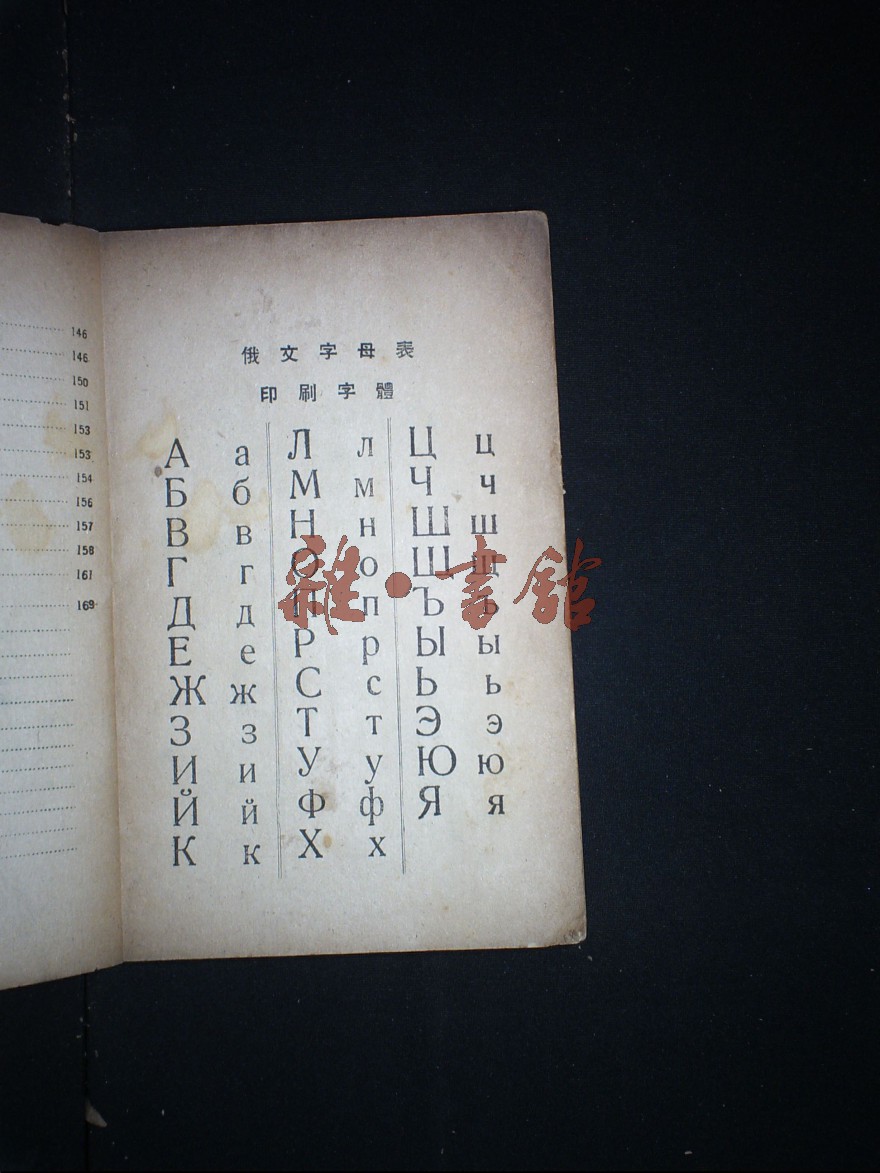 146
146
150
151
153
153
154
156
157
158
161
169
俄文字母表
印刷字體
А а Л л Ц ц
Б б М м Ч ч
В в Н н Ш ш
Г г О о Щ щ
Д д П п Ъ ъ
Е е Р р Ы ы
Ж ж С с Ь ь
З з Т т Э э
И и У у Ю ю
Й й Ф ф Я я
К к Х х
雜·書館